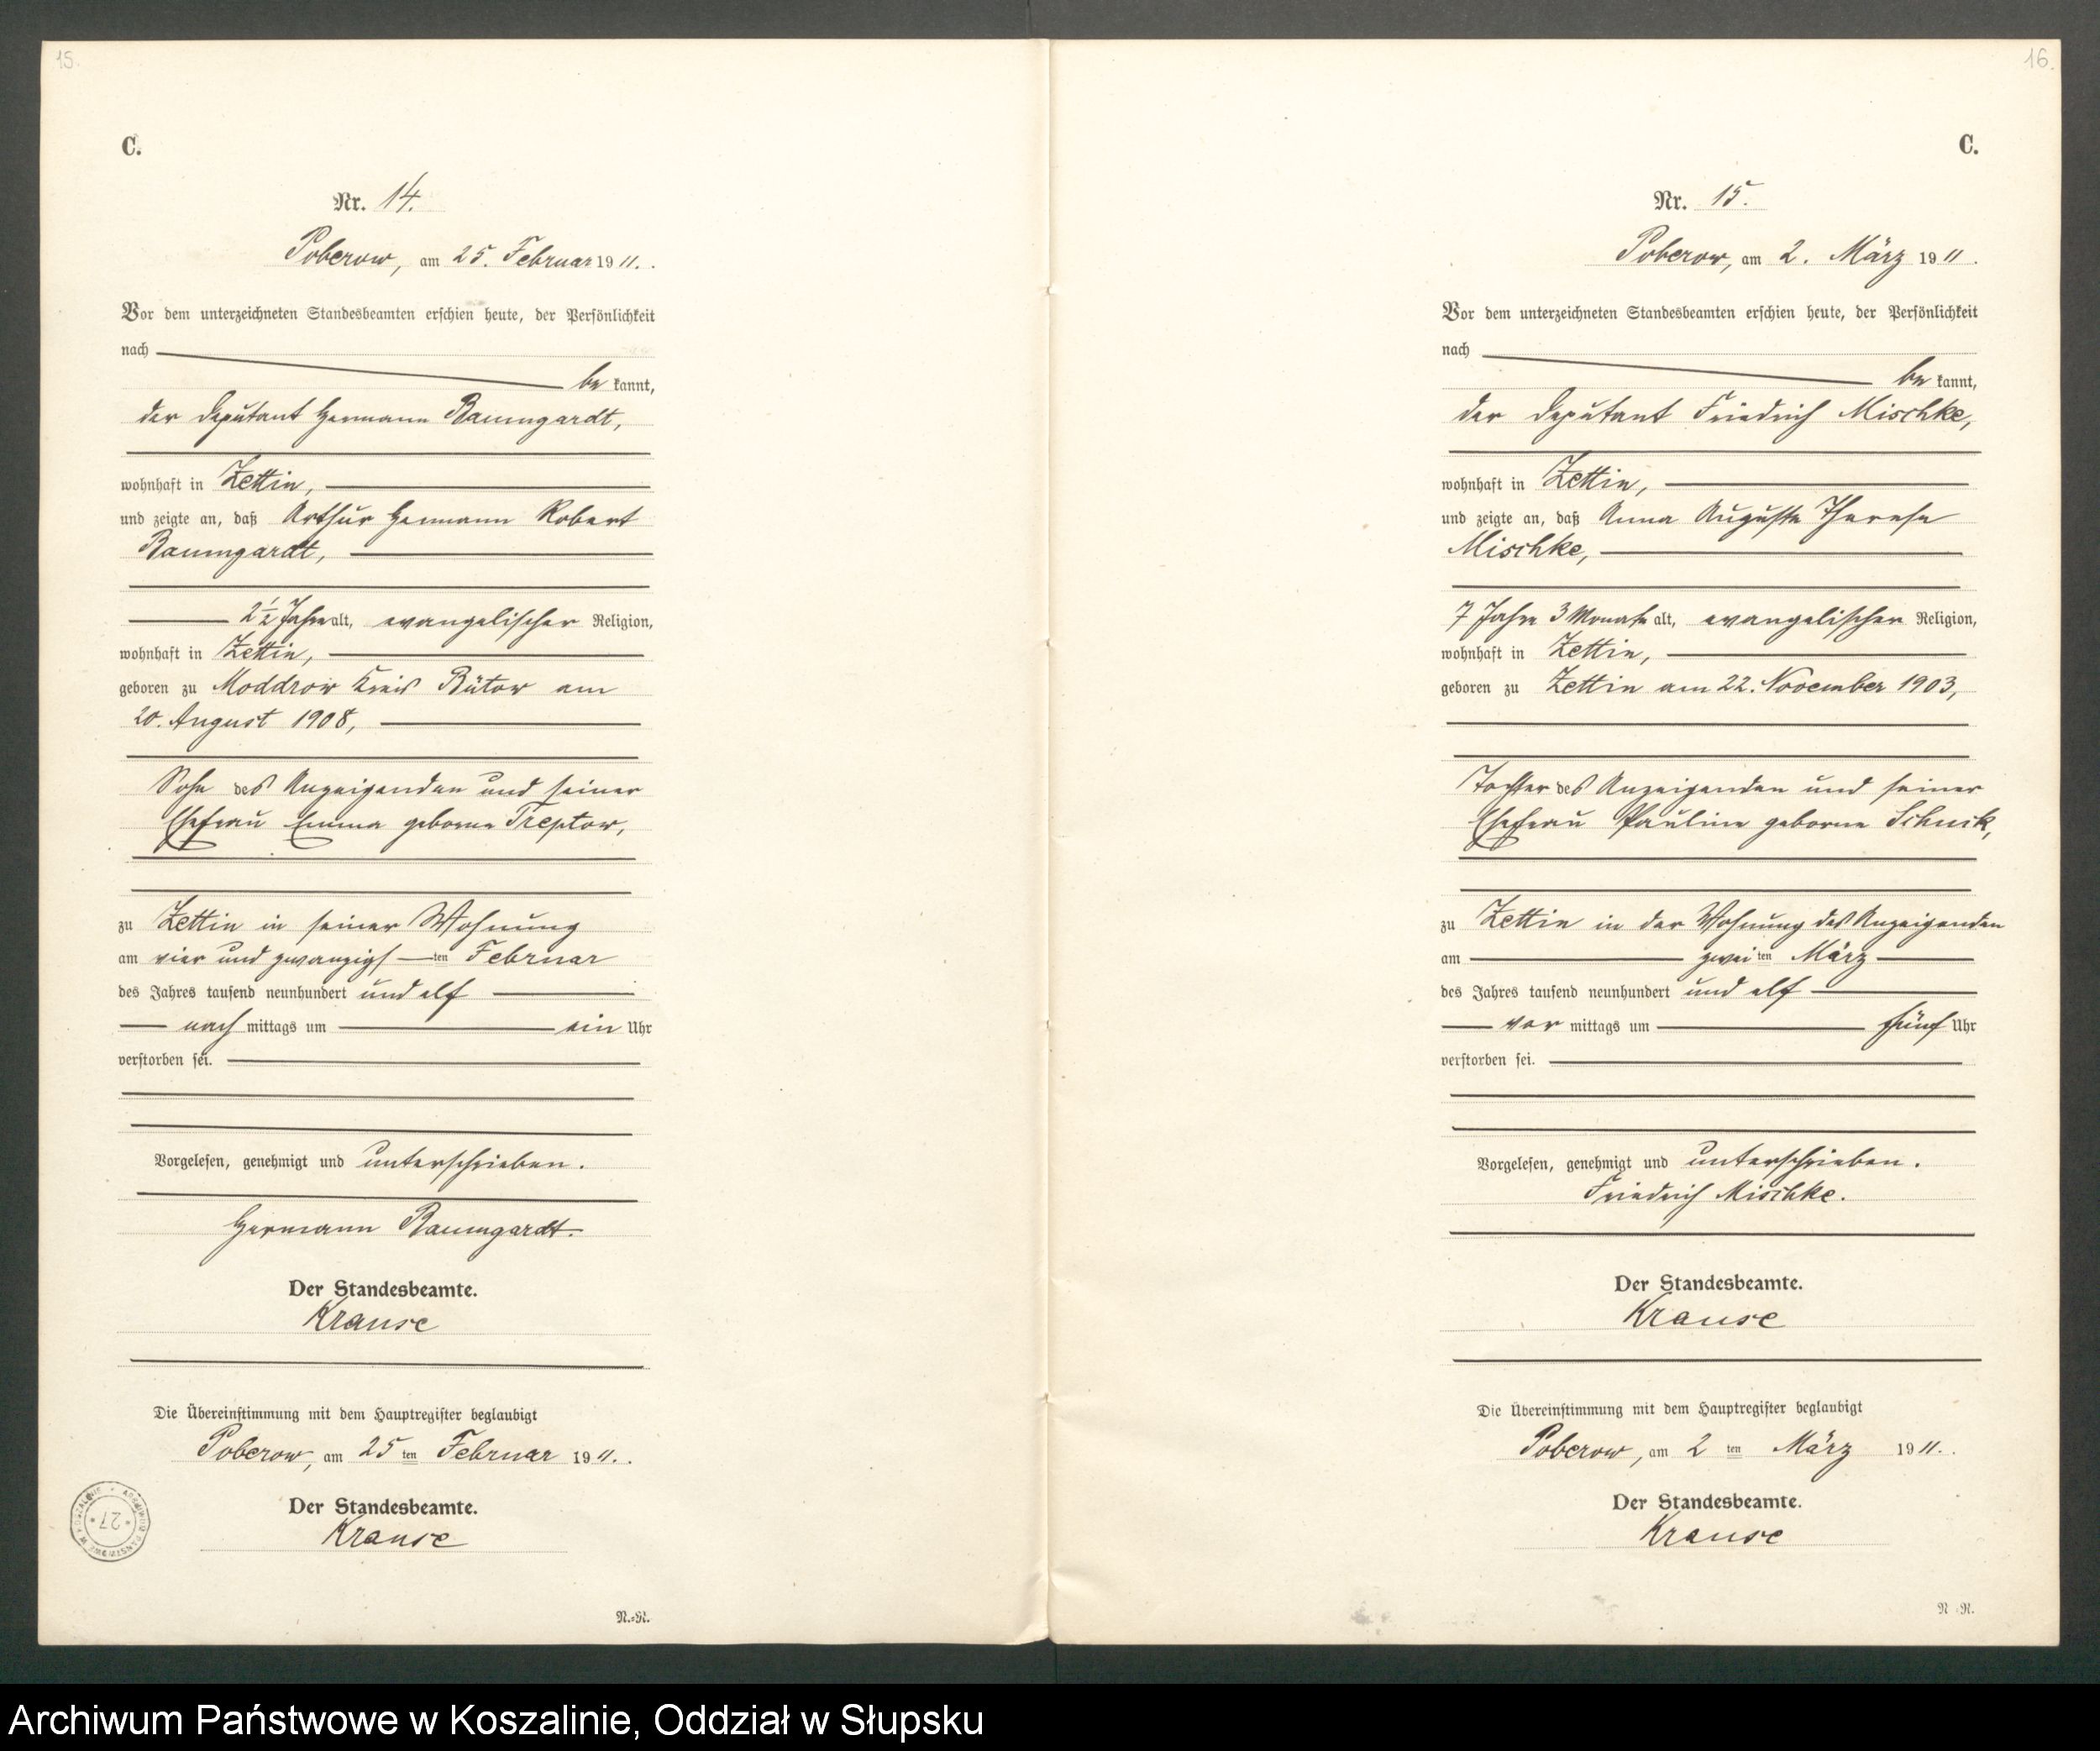 15.
C.
Nr. 14.
Poberow, am 25. Februar 1911.
Vor dem unterzeichneten Standesbeamten erschien heute, der Persönlichkeit
nach
be kannt,
der Deputant Hermann Baumgardt,
wohnhaft in Zettin,
und zeigte an, daß Arthur Hermann Robert
Baumgardt,
2½ Jahre alt, evangelischer Religion,
wohnhaft in Zettin,
geboren zu Moddrow Kreis Bütow am
20. August 1908,
Sohn des Anzeigenden und seiner
Ehefrau Emma geborne Treptow,
zu Zettin in seiner Wohnung
am vier und zwanzigs ten Februar
des Jahres tausend neunhundert und elf
nach mittags um ein Uhr
verstorben sei.
Vorgelesen, genehmigt und unterschrieben.
Hermann Baumgardt.
Der Standesbeamte.
Krause
Die Übereinstimmung mit dem Hauptregister beglaubigt
Poberow, am 25 ten Februar 1911.
Der Standesbeamte.
Krause
ARCHIWUM PAŃSTWOWE W KOSZALINIE
* 27 *
N.=R.
16.
C.
Nr. 15.
Poberow, am 2. März 1911.
Vor dem unterzeichneten Standesbeamten erschien heute, der Persönlichkeit
nach
be kannt,
der Deputant Friedrich Mischke,
wohnhaft in Zettin,
und zeigte an, daß Anna Auguste Therese
Mischke,
7 Jahre 3 Monate alt, evangelischer Religion,
wohnhaft in Zettin,
geboren zu Zettin am 22. November 1903,
Tochter des Anzeigenden und seiner
Ehefrau Pauline geborne Schuck,
zu Zettin in der Wohnung des Anzeigenden
am zwei ten März
des Jahres tausend neunhundert und elf
vor mittags um fünf Uhr
verstorben sei.
Vorgelesen, genehmigt und unterschrieben.
Friedrich Mischke.
Der Standesbeamte.
Krause
Die Übereinstimmung mit dem Hauptregister beglaubigt
Poberow, am 2 ten März 1911.
Der Standesbeamte.
Krause
N R.
Archiwum Państwowe w Koszalinie, Oddział w Słupsku